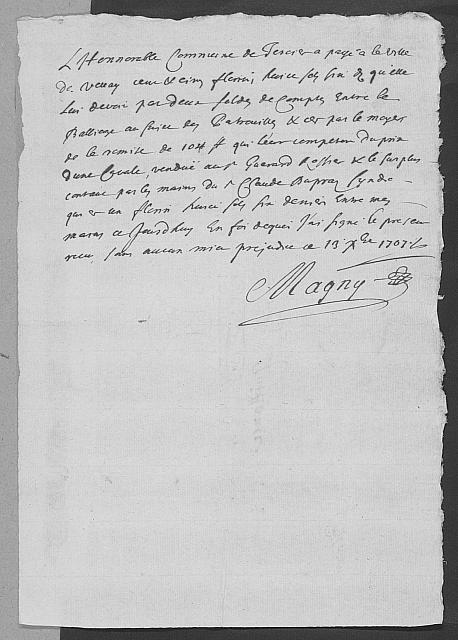 L'Honnorable Commune de a payé a la ville
De Vevay cent & cinq florins huict sols six d. qu'elle
Lui devoit par deux soldes de Compte Entre le
Balliage au sujet des Patrouilles & cet par le moyen
de la remise de 104 ff qui leur competoit du prix
d'une Cavale vendue au Sr & le surplus
contant par les mains du Sr Claude Sindc
qui est un florin huict sols six deniers Entre mes
mains ce Jourdhuy En foi dequoi J'ai signé le present
receu sans aucun mien prejudice ce 13 Xbre 1707
Magny